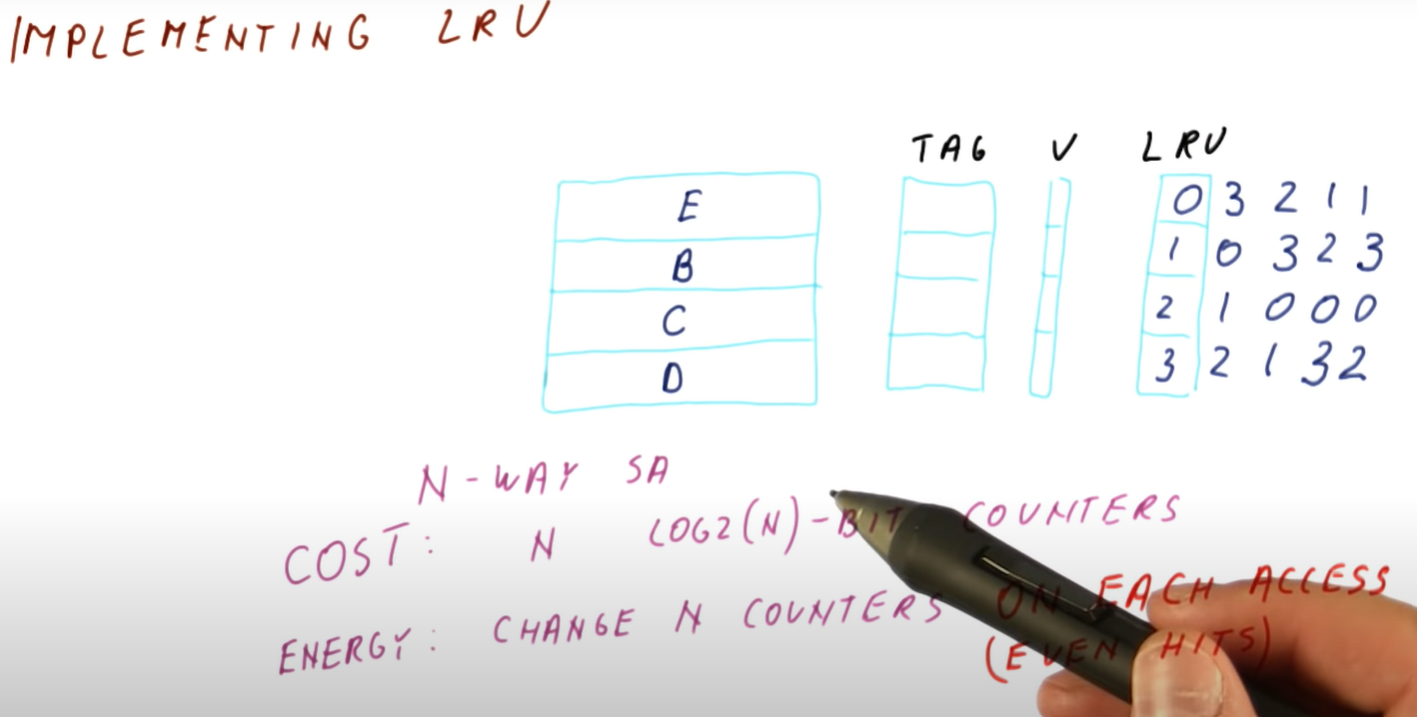 IMPLEMENTING LRU
TAG V LRU
E 0 3 2 1 1
B 1 0 3 2 3
C 2 1 0 0 0
D 3 2 1 3 2
N-WAY SA
COST: N LOG2(N)-BIT COUNTERS
ENERGY: CHANGE N COUNTERS ON EACH ACCESS
(EVEN HITS)